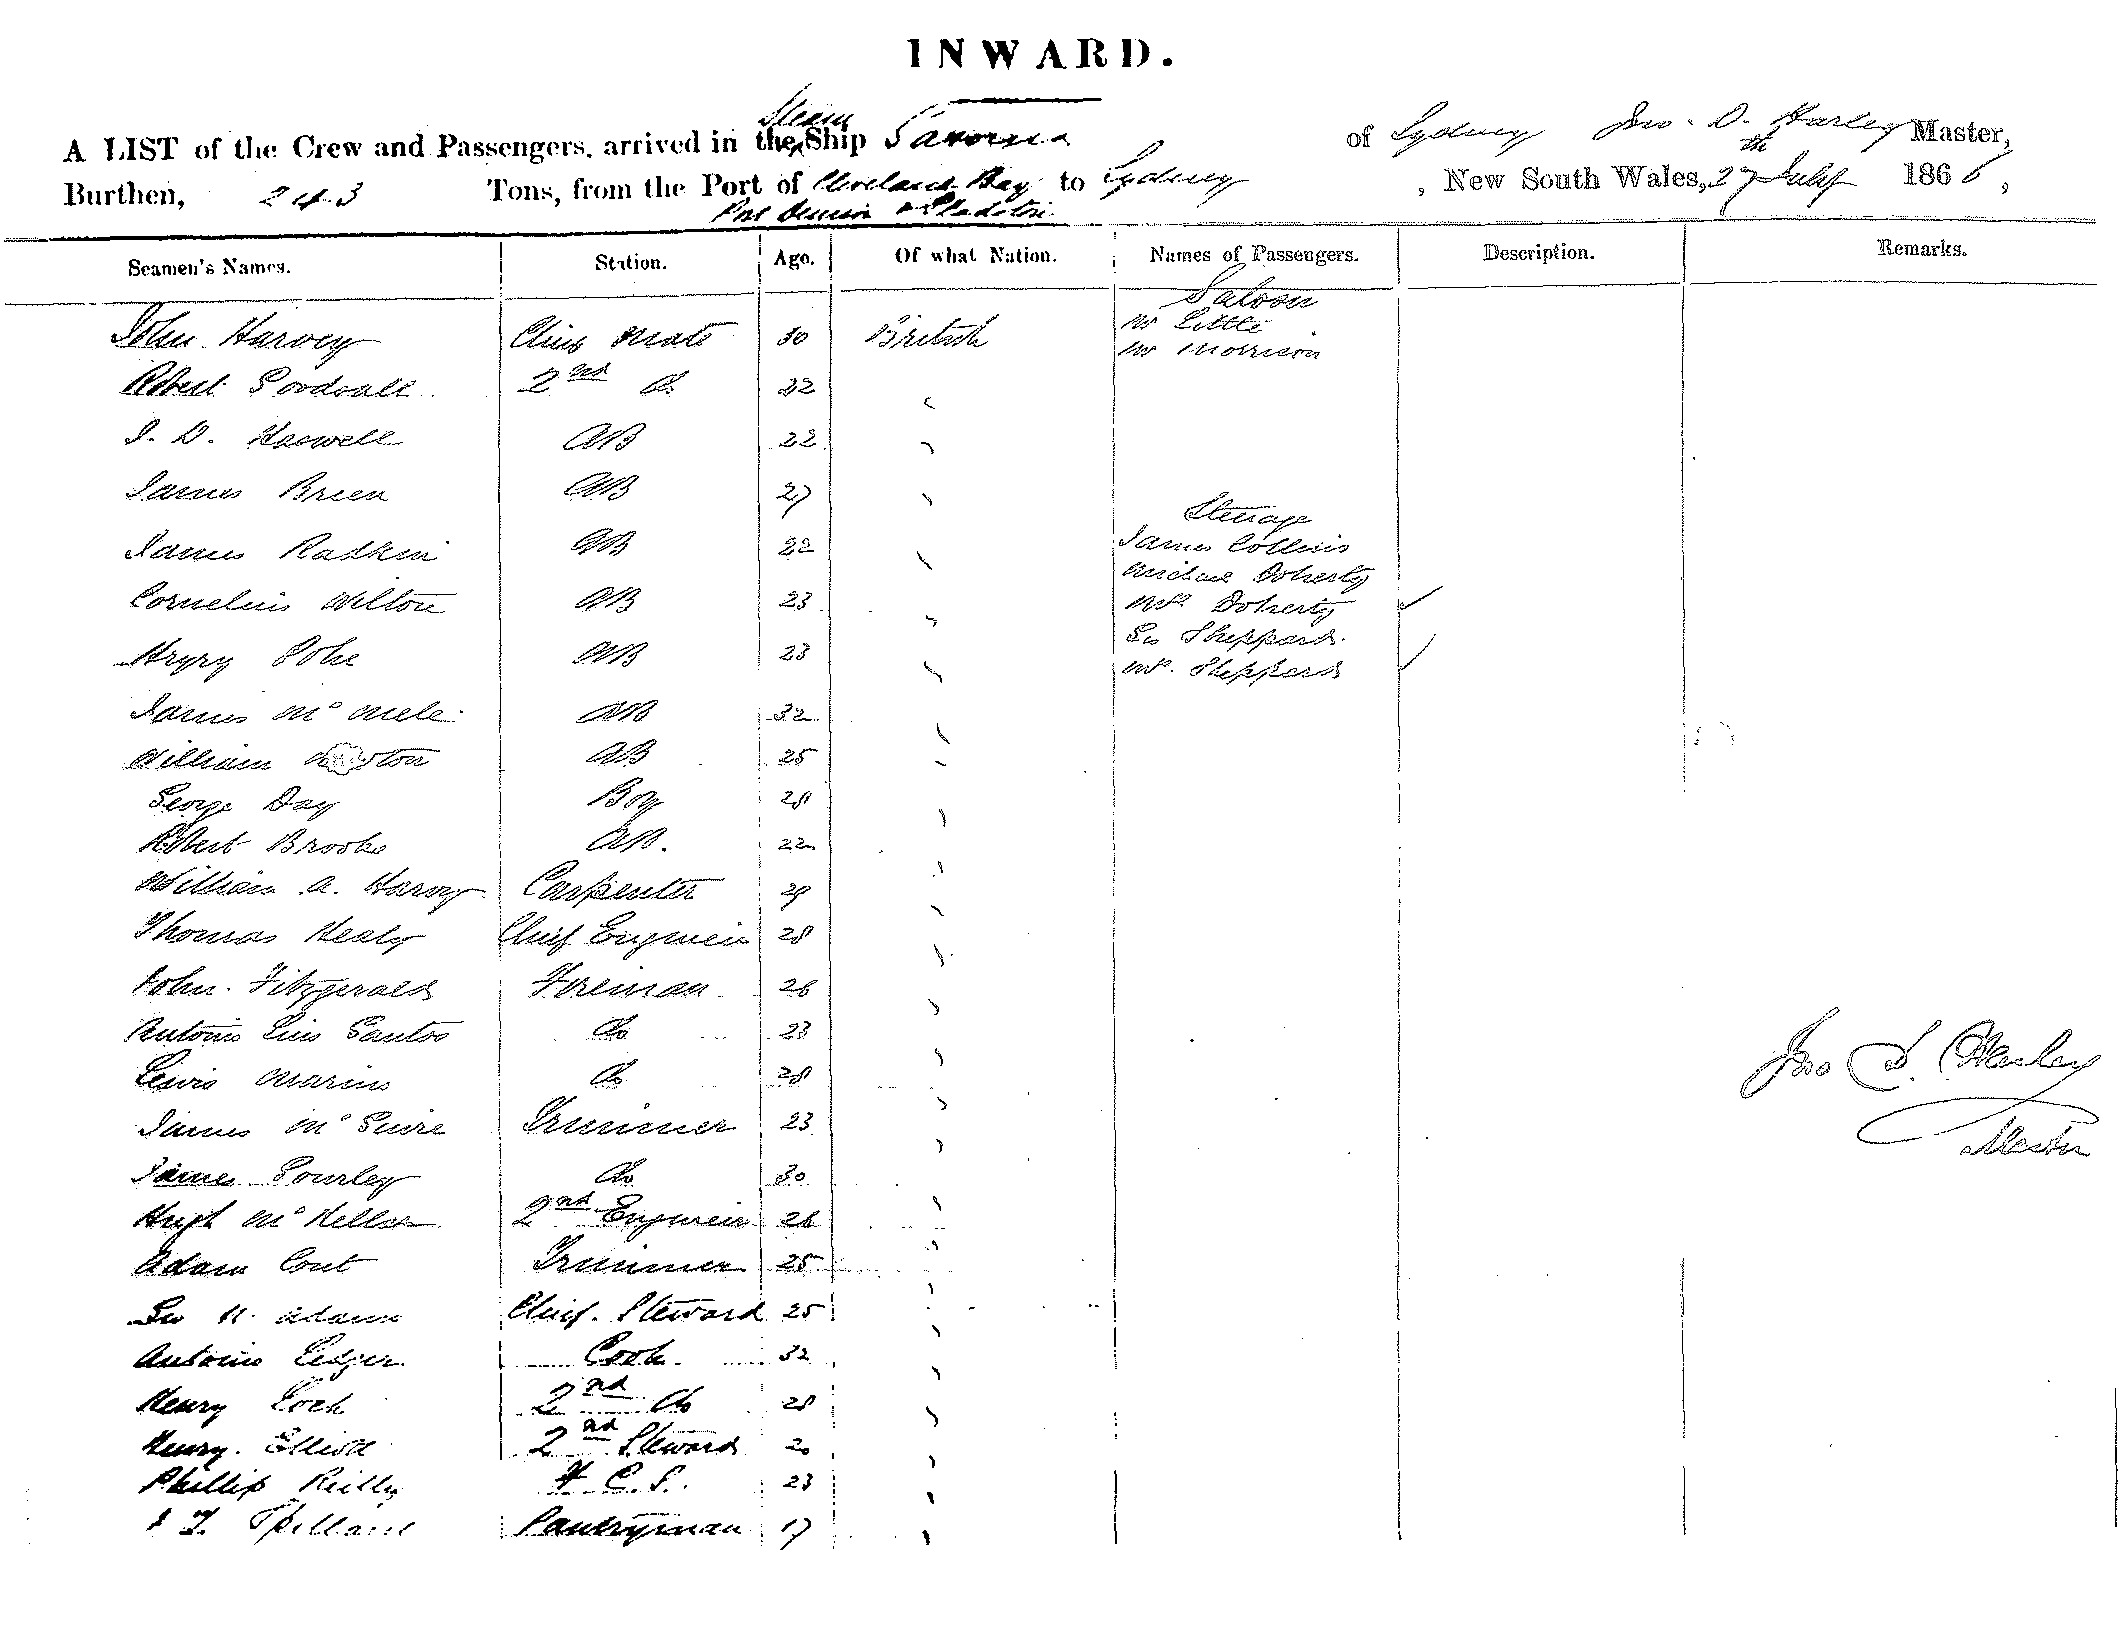 INWARD.
A LIST of the Crew and Passengers, arrived in the Steam Ship of Sydney Jno. D. Harley Master,
Burthen, 243 Tons, from the Port of Cleveland Bay to Sydney, New South Wales, 27th July 1866,
Port Denison & Gladstone
Seamen's Names. Station. Age. Of what Nation. Names of Passengers. Description. Remarks.
Saloon
John Harvey Chief Mate 30 British Mr Little
Mr Morrison
Robert Goodsall 2nd Do 22
J. D. Haswell AB 22
James Breen AB 27
Steerage
James Raskin AB 22 James Collins
Michael Doherty
Cornelius Wilton AB 23 Mrs Doherty
Geo Sheppard
AB 23 Mrs. Shepperd
James Mc AB 32
William AB 25
George Day Boy
Robert Brooke AB. 22
William A. Harvey Carpenter 29
Thomas Healy Chief Engineer 28
John Fitzgerald Fireman 26
Antonio Luis Santos Do 23
Lewis Marins Do 28
James McGuire Trimmer 23
James Gourley Do 30
Hugh McKellar 2nd Engineer 26
Adam Cout Trimmer 25
Geo H. Adams Chief Steward 25
Antonio Ledger Cook 32
Henry Lock 2nd Do 28
Henry Elliott 2nd Steward 20
Phillip Reilly F. C. S. 23
J. Spillane Pantryman 17
Jno D. Harley
Master